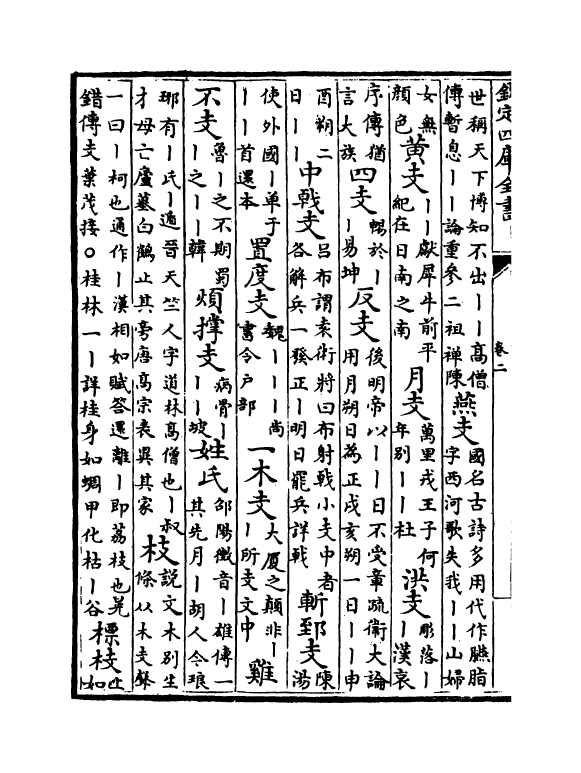 欽定四庫全書
卷二
世稱天下博知不出丨丨高僧
傳暫息丨丨論重參二祖禪陳
燕支
國名古詩多用代作臙脂
字西河歌失我丨丨山婦
女無
顏色
黃支
丨丨獻犀牛前平
紀在日南之南
月支
萬里戎王子何
年別丨丨杜
洪支
彫落丨
丨漢哀
序傳猶
言大族
四支
暢於丨
丨易坤
反支
後明帝以丨丨日不受章疏衛大論
用月朔日為正戌亥朔一日丨丨申
酉朔二
日丨丨
中戟支
呂布謂袁術將曰布射戟小支中者
各解兵一發正丨明日罷兵詳戟
斬郅支
陳
湯
使外國丨單于
丨丨首還本
置度支
魏丨丨丨尚
書令戶部
一木支
大厦之顛非丨
丨所支文中
雞
不支
魯丨之不期蜀
丨之丨丨韓
煩撑支
病骨丨
丨丨坡
姓氏
郃陽徵音丨雄傳一
其先月丨胡人今琅
琊有丨氏丨遁晉天竺人字道林高僧也丨叔
才母亡廬墓白鶴止其旁唐高宗表異其家
枝
說文木別生
條从木支穌
一曰丨柯也通作丨漢相如賦答遝離丨即荔枝也
錯傳支葉茂接○桂林一丨詳桂身如蜩甲化枯丨谷
標枝
上
如